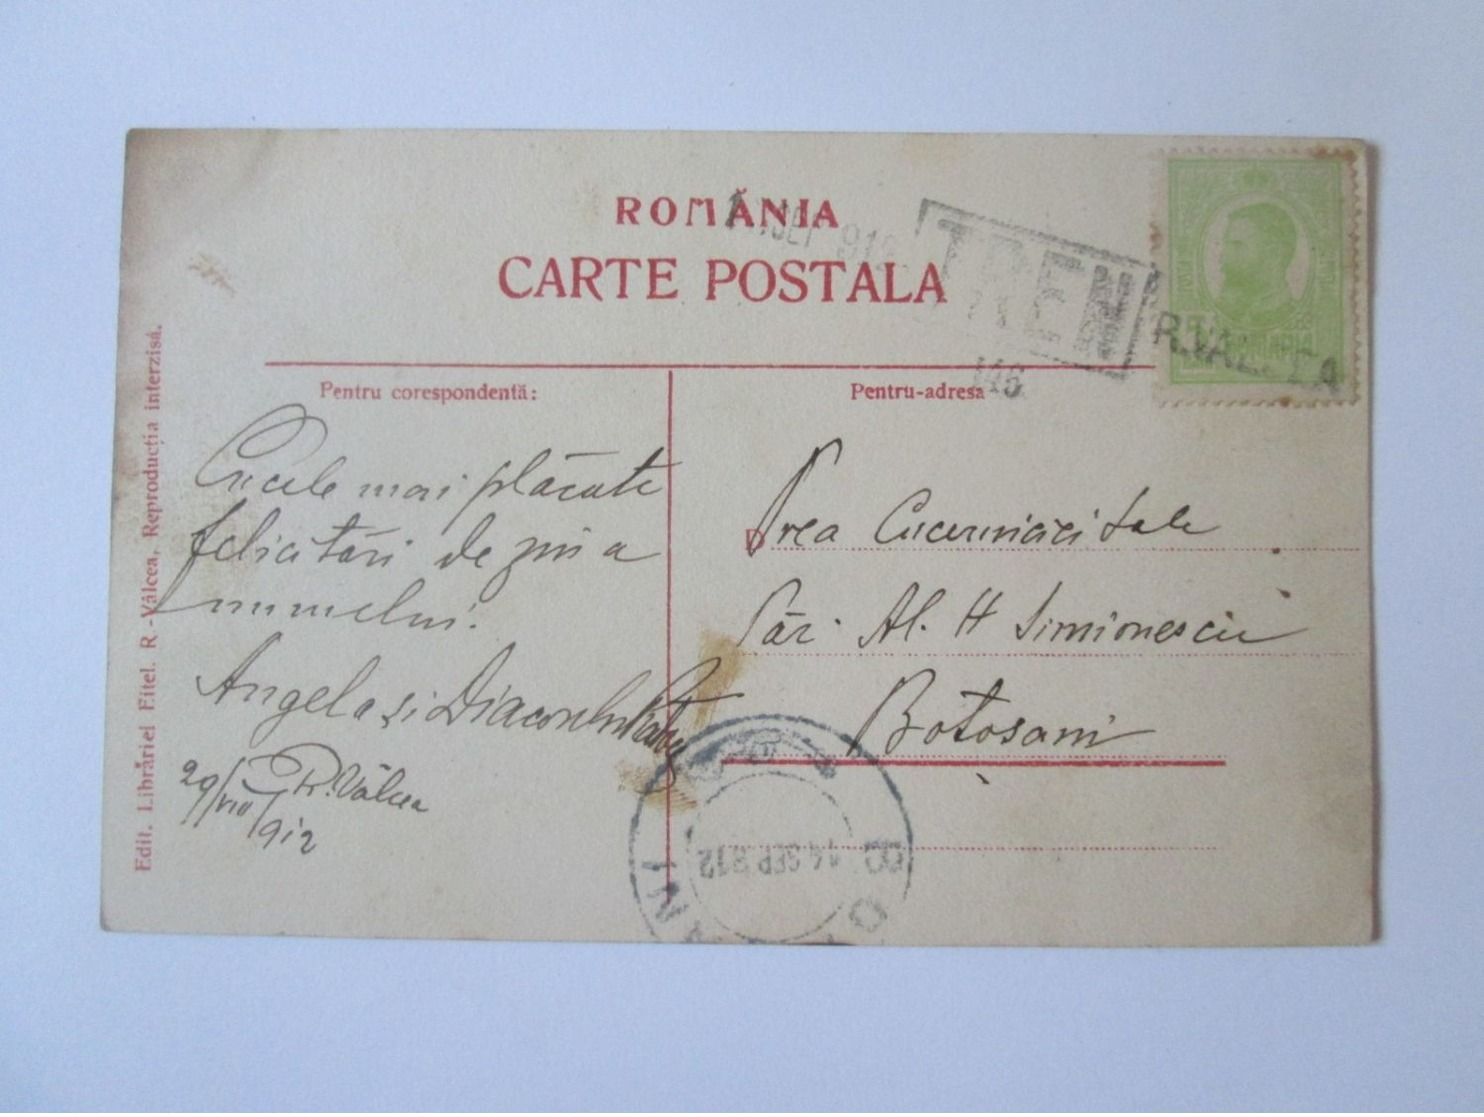 ROMÂNIA
CARTE POSTALA
TREN
R.VALCEA
146
Pentru corespondentă:
Pentru-adresa
Cu cele mai plăcute
felicitări de ziua
numelui.
Angela și Diaconul
29/VIII/912 R. Vâlcea
Prea Cucerniciei Sale
Păr. Al. H Simionescu
Botosani
14 SEP 912
Edit. Librăriei Eitel. R -Vâlcea, Reproducția interzisă.